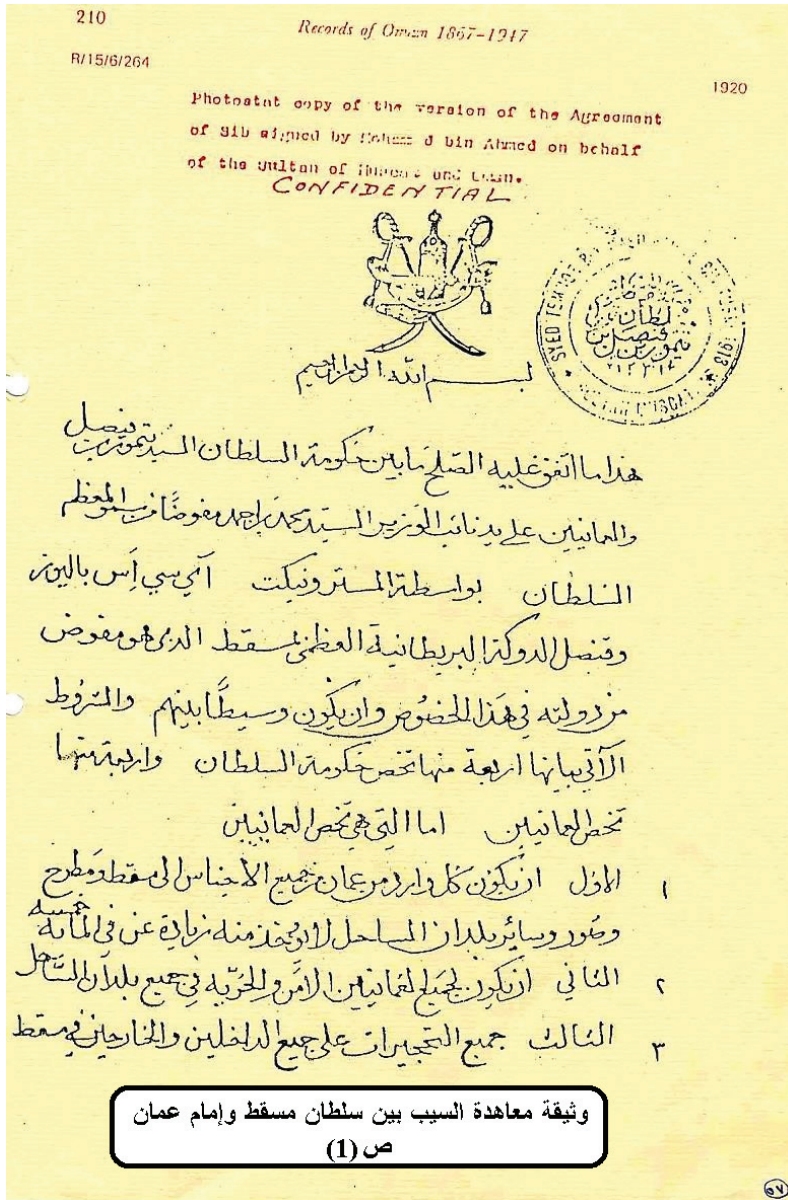 210
Records of Oman 1867-1947
R/15/6/264
1920
Photostat copy of the version of the Agreement
of Sib signed by Mohamed bin Ahmed on behalf
of the Sultan of Muscat and Oman.
CONFIDENTIAL
SYED
سلطان
فيصل بن
تيمور بن
بسم الله الرحمن الرحيم
هذا ما اتفق عليه الصلح ما بين حكومة السلطان السيد تيمور بن فيصل
والعمانيين على يد نائب الوزير السيد محمد بن احمد مفوضًا من المعظم
السلطان بواسطة المستر ونيكت آئي سي إس باليوز
وقنصل الدولة البريطانية العظمى لمسقط الذي هو مفوض
من دولته في هذا الخصوص وان يكون وسيطًا بينهم والشروط
الآتي بيانها اربعة منها تخص حكومة السلطان واربعة منها
تخص العمانيين اما التي هي تخص العمانيين
١ الاول ان يكون كل وارد من عمان من جميع الاجناس الى مسقط ومطرح
وصور وسائر بلدان الساحل لا يؤخذ منه زيادة عن في المائة خمسة
٢ الثاني ان يكون لجميع العمانيين الأمن والحرّيه في جميع بلدان السّاحل
٣ الثالث جميع التحجيرات على جميع الداخلين والخارجين في مسقط
وثيقة معاهدة السيب بين سلطان مسقط وإمام عمان
ص (1)
٥٧